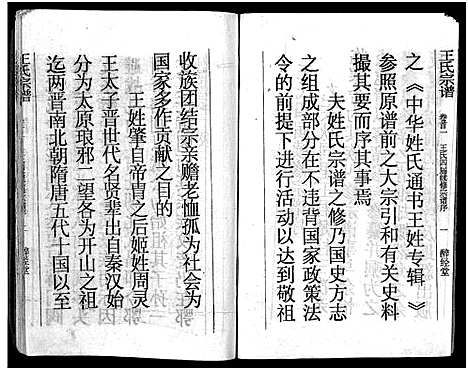 王氏宗谱
卷首二
王氏四届续修宗谱序
一
醉经堂
之《中华姓氏通书王姓专辑》
参照原谱前之大宗引和有关史料
撮其要而序其事焉
夫姓氏宗谱之修乃国史方志
之组成部分在不违背国家政策法
令的前提下进行活动可以达敬祖
收族团结宗亲赡老恤孤为社会为
国家多作贡献之目的
王姓肇自帝胄之后姬姓周灵
王太子晋世代名贤辈出自秦汉始
分为太原琅邪二望各为开山之祖
迄两晋南北朝隋唐五代十国以至
王氏宗谱